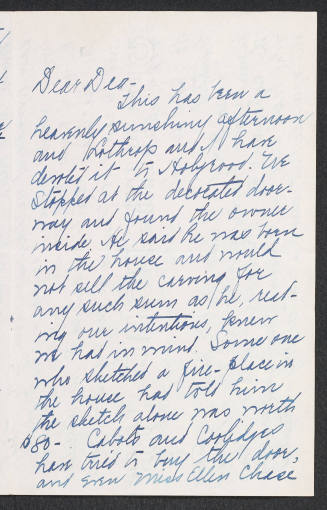 Dear Dea-
This has been a
heavenly sunshiny afternoon
and Lothrop and I have
devoted it to Holyrood. We
stopped at the decorated door-
way and found the owner
inside. He said he was born
in the house and would
not sell the carving for
any such sum as he, read-
ing our intentions, knew
we had in mind. Some one
who sketched a fire-place in
the house had told him
the sketch alone was worth
$80-. Cabots and Coolidges
have tried to buy the door,
and even Miss Ellen Chase